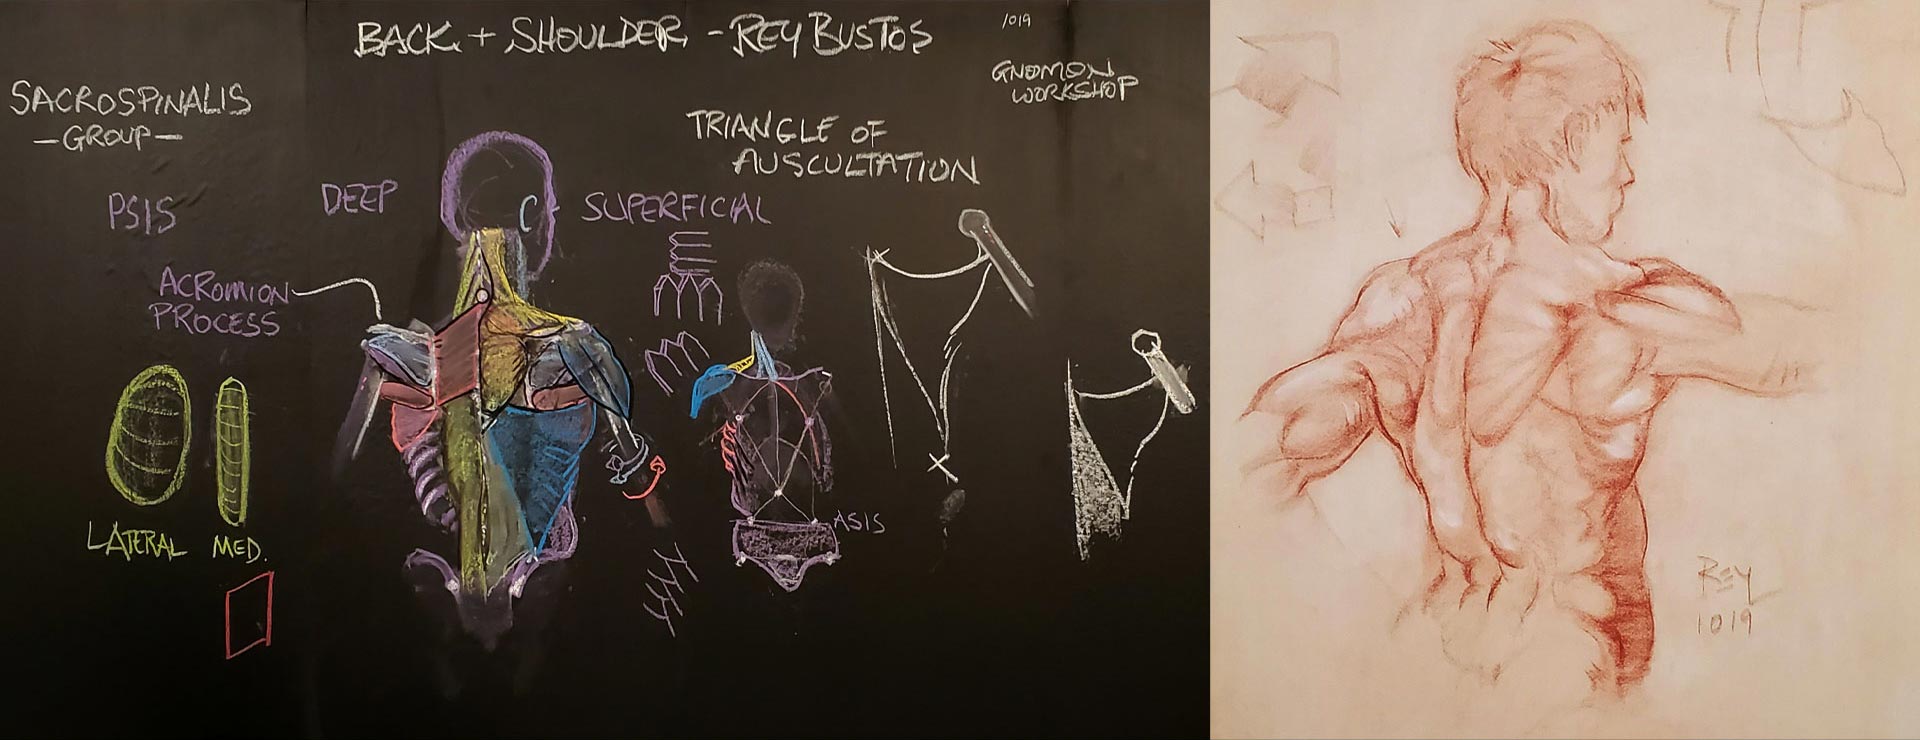 BACK + SHOULDER - REY BUSTOS
1019
GNOMON
WORKSHOP
SACROSPINALIS
- GROUP -
TRIANGLE OF
AUSCULTATION
PSIS
DEEP
C
SUPERFICIAL
ACROMION
PROCESS
LATERAL
MED.
ASIS
REY
1019